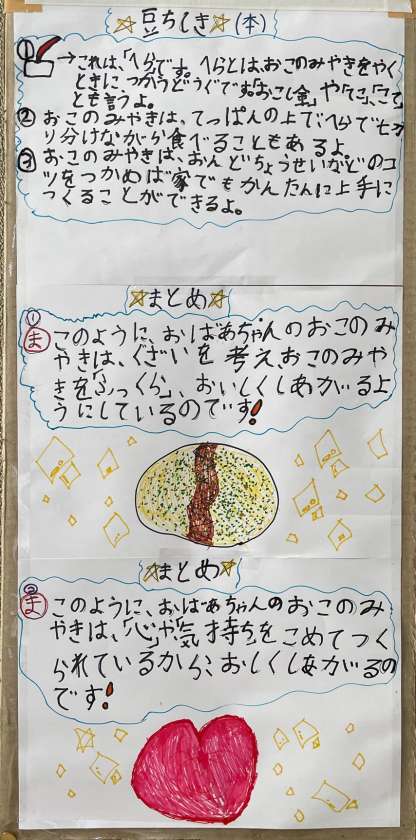 ☆豆ちしき☆(本)
① →これは、「へらです。へらとは、おこのみやきをやく
ときに、つかうどうぐです。「おこし金」や「てこ」、「こて」
とも言うよ。
② おこのみやきは、てっぱんの上で、へらで七刀
り分けながら食べることもあるよ。
③ おこのみやきは、おんどちょうせいなどのコ
ツをつかめば家でもかんたんに上手に
つくることができるよ。
☆まとめ☆
① ま このように、おばあちゃんのおこのみ
やきは、ぐざいを考え、おこのみや
きを「ふっくら」、おいしくしあがるよ
うにしているのです!
☆まとめ☆
② ま このように、おばあちゃんのおこのみ
やきは、「心」や「気持ち」をこめてつく
られているから、おしくしあがるの
です!